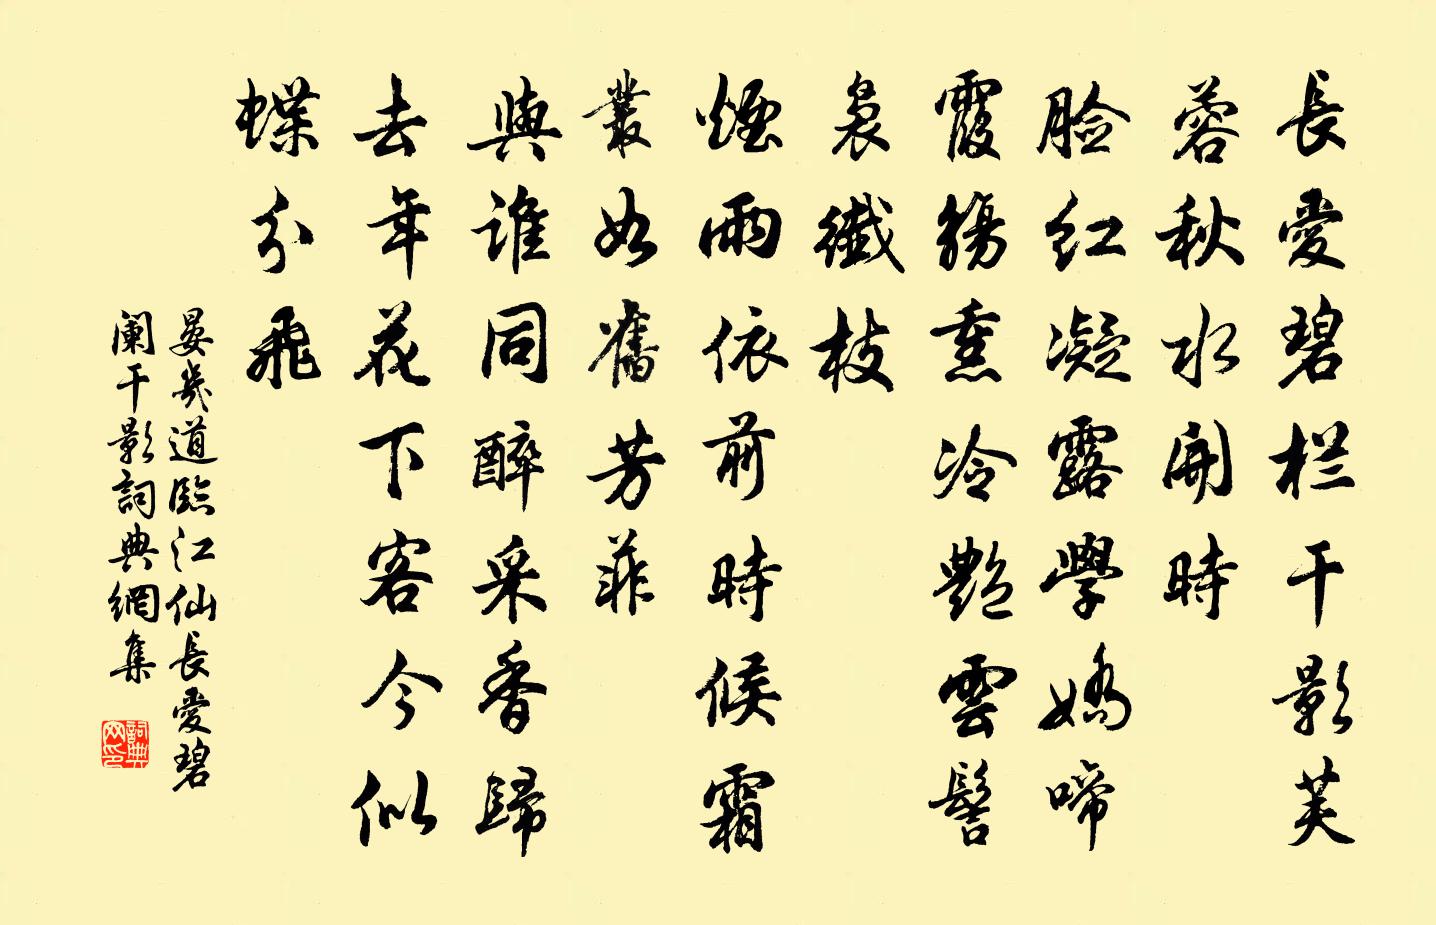 長愛碧栏干影芙
蓉秋水開時
脸红凝露學嬌啼
霞觴熏冷艷雲髻
袅纖枝
煙雨依前時候霜
叢如舊芳菲
與誰同醉采香歸
去年花下客今似
蝶分飛
晏幾道臨江仙長愛碧
阑干影詞典網集
詞典
网印